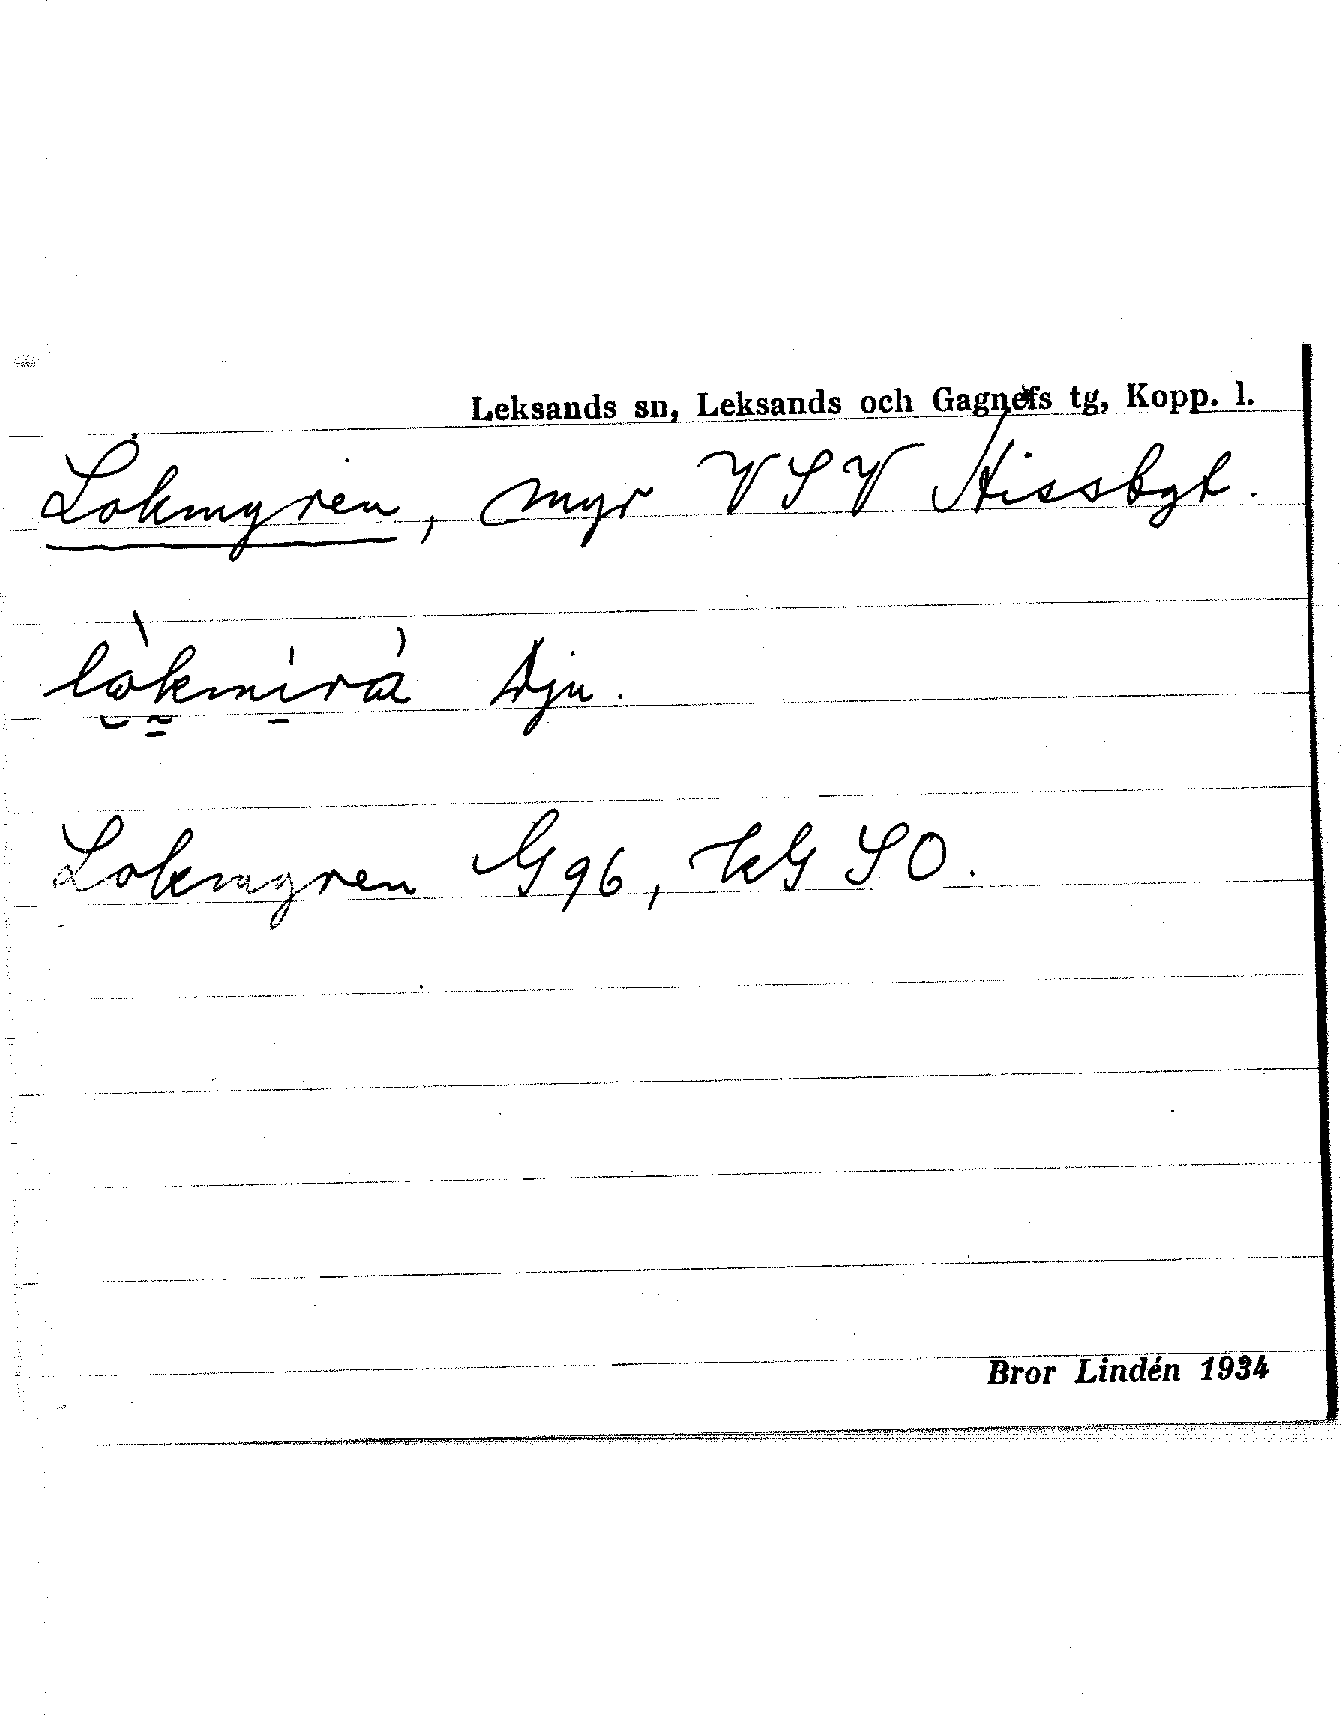 Leksands sn, Leksands och Gagnefs tg, Kopp. l.
Lokmyren, myr VSV Hissbyt.
Dju.
Lokmyren G96, kG SO.
Bror Lindén 1934